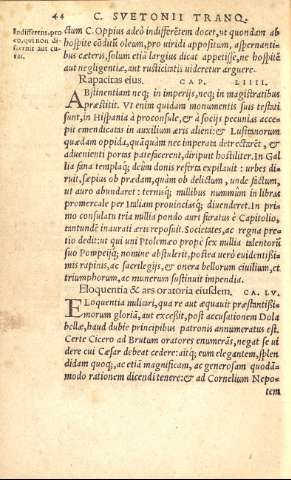 44 C. SVETONII TRANQ.
Indifferens, pro
eo, qui non di-
scernit aut cu-
rat.
ctum C. Oppius adeò indifferẽtem docet, ut quondam ab
hospite cõditũ oleum, pro uiridi appositum, aspernanti-
bus cæteris, solum etiã largius dicat appetisse, ne hospitẽ
aut negligentiæ, aut rusticitatis uideretur arguere.
Rapacitas eius. CAP. LIIII.
ABstinentiam neq; in imperijs, neq; in magistratibus
præstitit. VT enim quidam monumentis suis testati
sunt, in Hispania à proconsule, & à socijs pecunias acce-
pit emendicatas in auxilium æris alieni: & Lusitanorum
quædam oppida, quãquàm nec imperata detrectarẽt, &
aduenienti portas patefacerent, diripuit hostiliter. In Gal
lia fana templaq́; deûm donis referta expilauit: urbes di-
ruit, sæpius ob prædam, quàm ob delictum, unde factum,
ut auro abundaret: ternisq́; millibus nummûm in libras
promercale per Italiam prouinciasq́; diuenderet. In pri-
mo consulatu tria millia pondo auri furatus è Capitolio,
tantundẽ inaurati æris reposuit. Societates, ac regna pre-
tio dedit: ut qui uni Ptolemæo propè sex millia talentorũ
suo Pompeijq́; nomine abstulerit, postea uerò euidentissi-
mis rapinis, ac sacrilegijs, & onera bellorum ciuilium, et
triumphorum, ac munerum sustinuit impendia.
Eloquentia & ars oratoria eiusdem. CA. LV.
ELoquentia militari, qua re aut æquauit præstantissi-
morum gloriã, aut excessit, post accusationem Dola
bellæ, haud dubie principibus patronis annumeratus est.
Certe Cicero ad Brutum oratores enumerãs, negat se ui
dere cui Cæsar debeat cedere: aitq́; eum elegantem, splen
didam quoq;, ac etiã magnificam, ac generosam quodã-
modo rationem dicendi tenere: & ad Cornelium Nepo-
tem